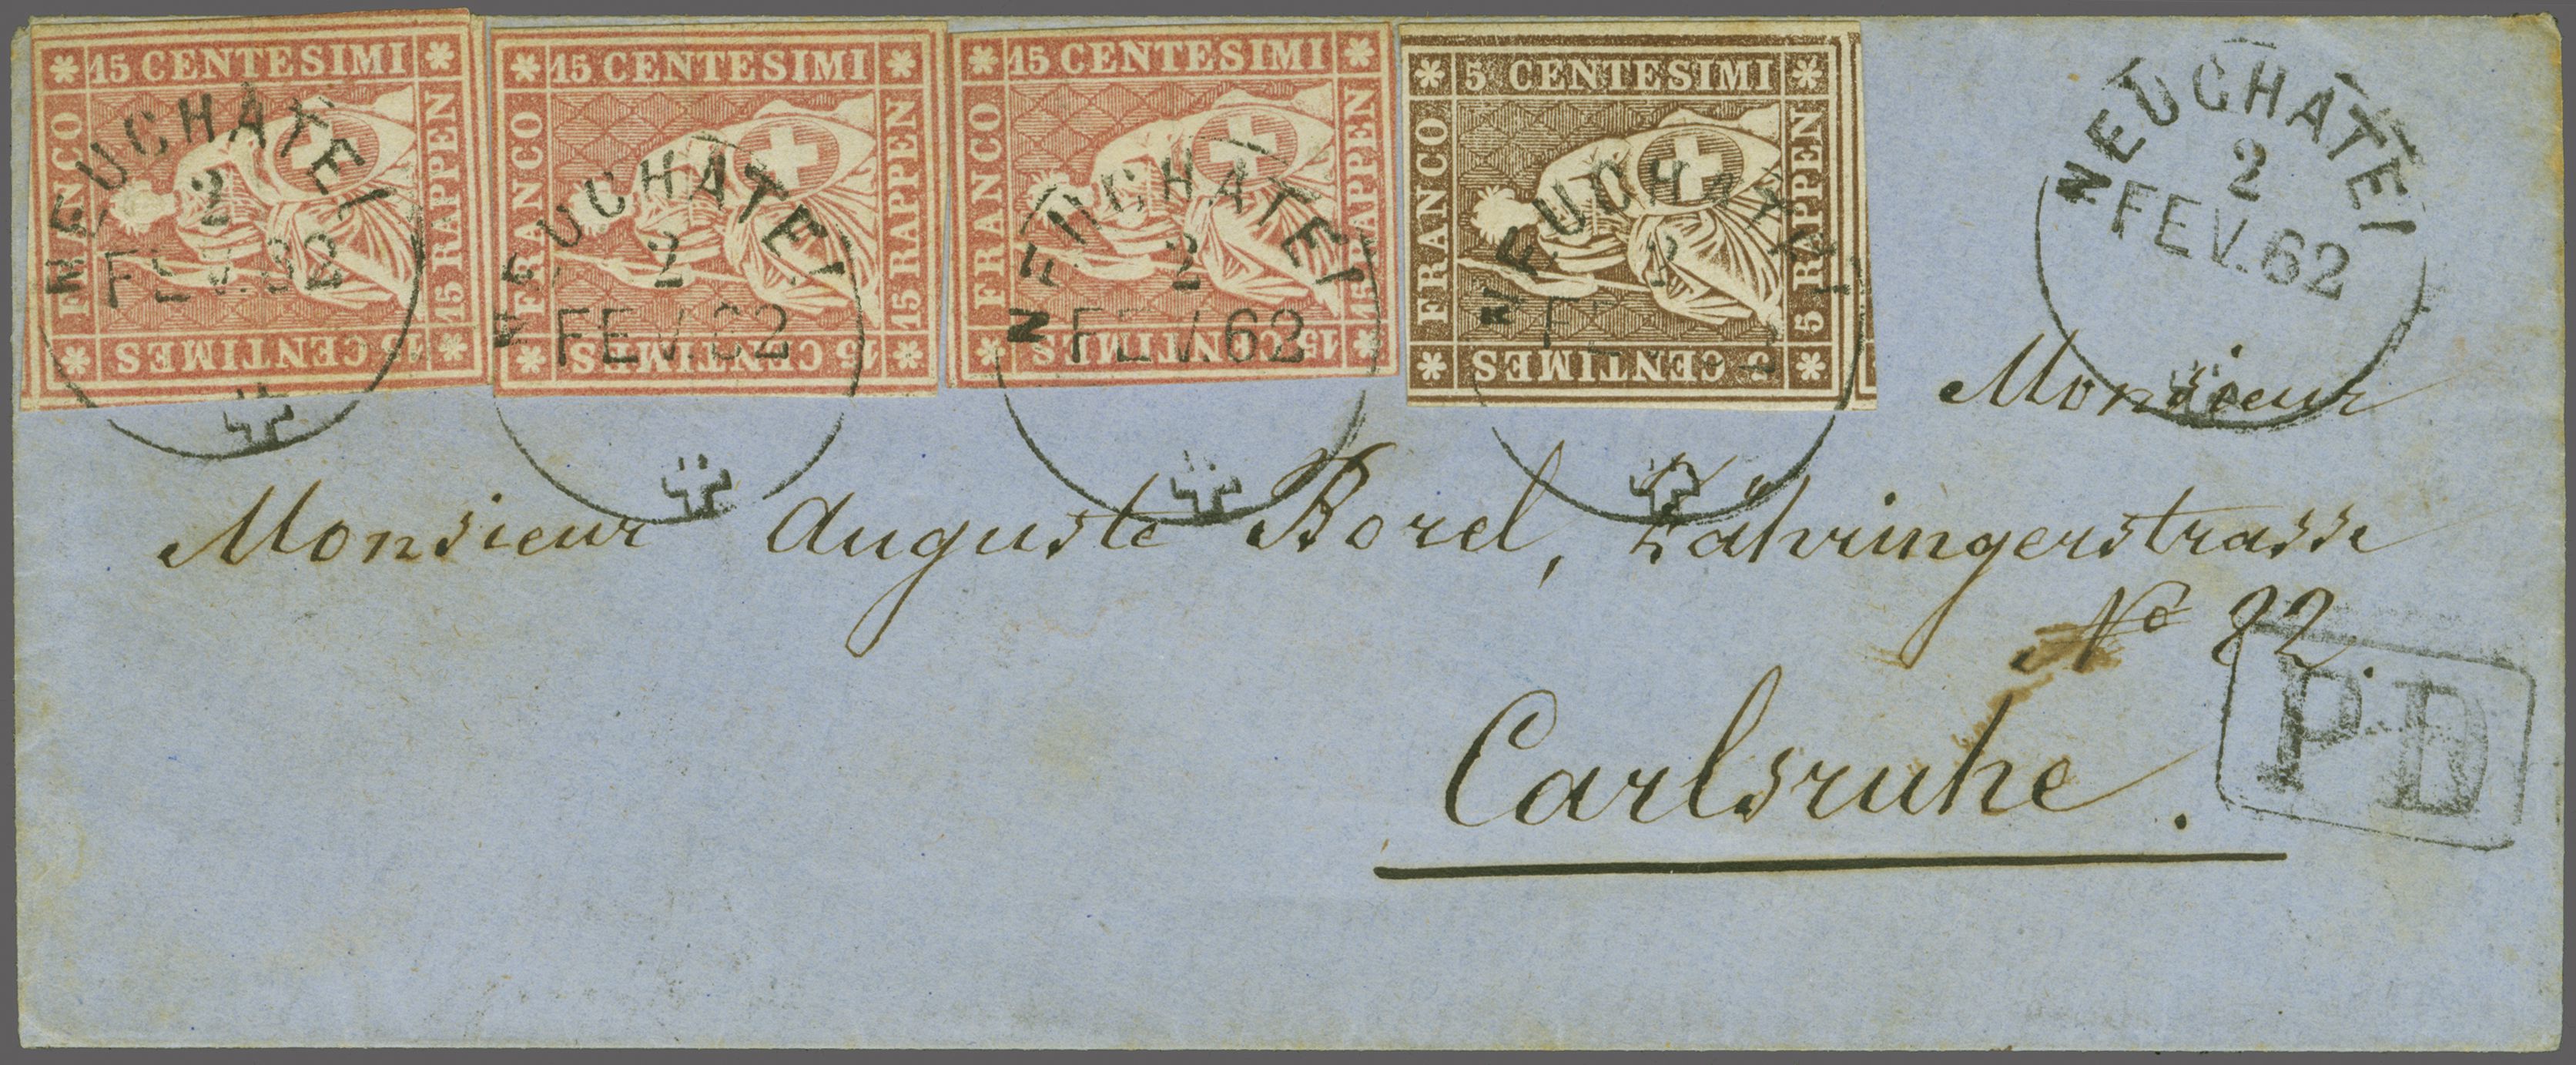 15 CENTESIMI
FRANCO
15 RAPPEN
15 CENTIMES
NEUCHATEL
2
FEV. 62
15 CENTESIMI
FRANCO
15 RAPPEN
15 CENTIMES
NEUCHATEL
2
FEV. 62
15 CENTESIMI
FRANCO
15 RAPPEN
15 CENTIMES
NEUCHATEL
2
FEV. 62
5 CENTESIMI
FRANCO
5 RAPPEN
5 CENTIMES
NEUCHATEL
2
NEUCHATEL
2
FEV. 62
Monsieur
Monsieur Auguste Borel, Zähringerstrasse
No 82.
Carlsruhe.
P.D